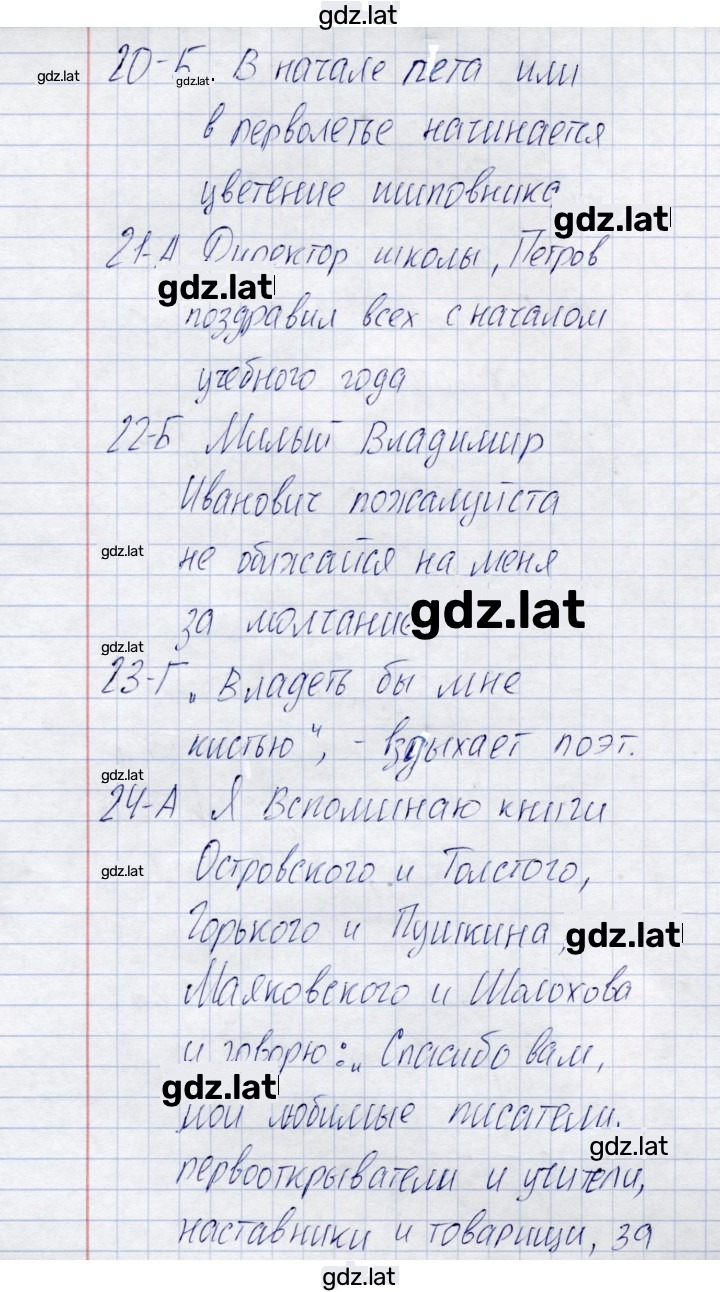 gdz.lat
gdz.lat 20-Б. В начале лета или
gdz.lat
в перволетье начинается
цветение шиповника
gdz.lat
21-А Директор школы, Петров
gdz.lat
поздравил всех с началом
учебного года
22-Б Милый Владимир
Иванович пожалуйста
gdz.lat не обижайся на меня
за молчание
gdz.lat
gdz.lat
23-Г „Владеть бы мне
кистью", - вздыхает поэт.
gdz.lat
24-А Я Вспоминаю книги
gdz.lat Островского и Толстого,
Горького и Пушкина,
gdz.lat
Маяковского и Шолохова
и говорю: „Спасибо вам,
gdz.lat
мои любимые писатели.
gdz.lat
первооткрыватели и учители,
наставники и товарищи, за
gdz.lat